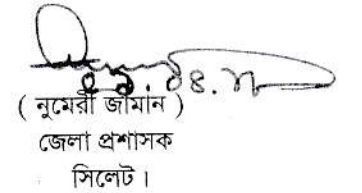 ( নুমেরী জামান )
জেলা প্রশাসক
সিলেট।